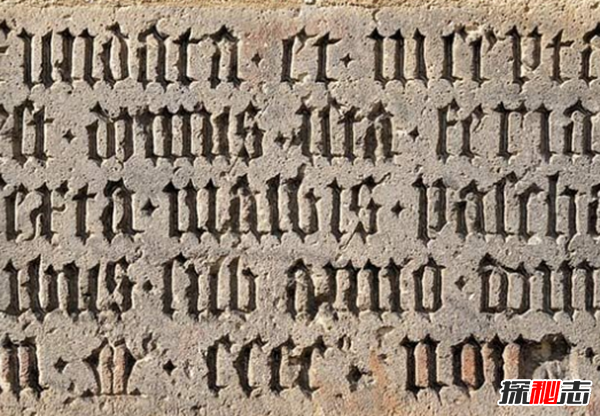 fundata · et · incept
est · domus · ista · feria
sexta · inalbis · pascha
ibus · sub · anno · dom
m · cccc · non
探秘志